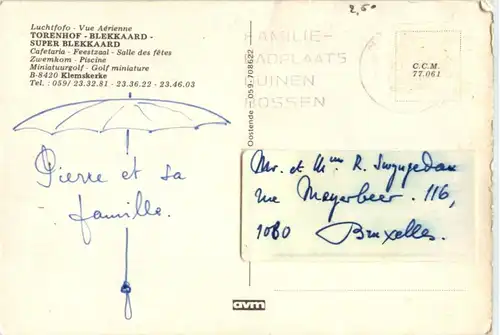 Luchtfofo - Vue Aérienne
TORENHOF - BLEKKAARD -
SUPER BLEKKAARD
Cafetaria - Feestzaal - Salle des fêtes
Zwemkom - Piscine
Miniatuurgolf - Golf miniature
B-8420 Klemskerke
Tel. : 059/ 23.32.81 - 23.36.22 - 23.46.03
Pierre et sa
famille.
Oostende - 059-708622
2,50
FAMILIE-
BADPLAATS
DUINEN
BOSSEN
C.C.M.
77.061
Mr. et Mme R.
rue Meyerbeer. 116,
1060 Bruxelles.
avm